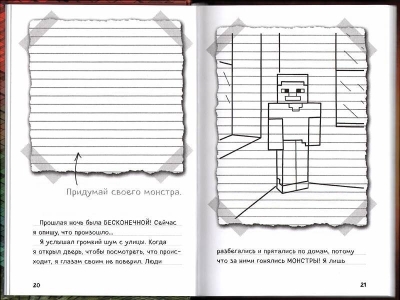 Придумай своего монстра.
Прошлая ночь была БЕСКОНЕЧНОЙ! Сейчас
я опишу, что произошло...
Я услышал громкий шум с улицы. Когда
я открыл дверь, чтобы посмотреть, что проис-
ходит, я глазам своим не поверил. Люди
20
разбегались и прятались по домам, потому
что за ними гонялись МОНСТРЫ! Я лишь
21